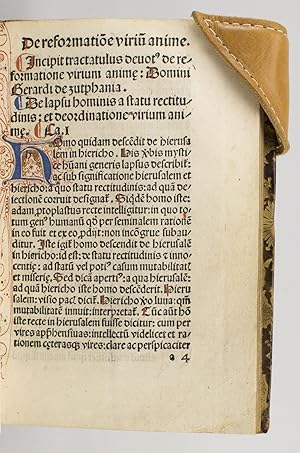 De reformatiõe viriũ anime.
Incipit tractatulus deuotꝰ de re-
formatione virium animę: Domini
Gerardi de zutphania.
De lapsu hominis a statu rectitu
dinis: et deordinatione virium ani-
mę. Ca. I
HOmo quidam descẽdit de hierusa
lem in hiericho. His ỽbis mysti
ce hũani generis lapsus describit̃
ac sub significatione hierusalem et
hiericho: a quo statu rectitudinis: ad quã de-
iectionẽ corruit designat̃. Siqdẽ homo iste:
adam, ptoplastus recte intelligitur: in quo to
tum genꝰ humanũ qđ per seminalem rationẽ
in eo fuit et ex eo, pdijt: non incõgrue subau
ditur. Iste igit̃ homo descendit de hierusalẽ
in hiericho: id est: de statu rectitudinis ⁊ inno
centię: ad statũ
casum mutabilitat̃
et miserię. Sed dicã apertiꝰ: a qua et quali
hierusalẽ homo iste hiericho descẽderit. Hieru
salem: visio pac̃ dicit̃. Hiericho ỽo luna: qm̃
mutabilitatẽ innuit: interpretat̃. Tũc aũt hõ
iste recte in hierusalem fuisse dicitur: cum per
vires apphensiuas: intellectũ videlicet et ra-
tionem cęterasqꝫ vires: clare ac perspicaciter
a 4